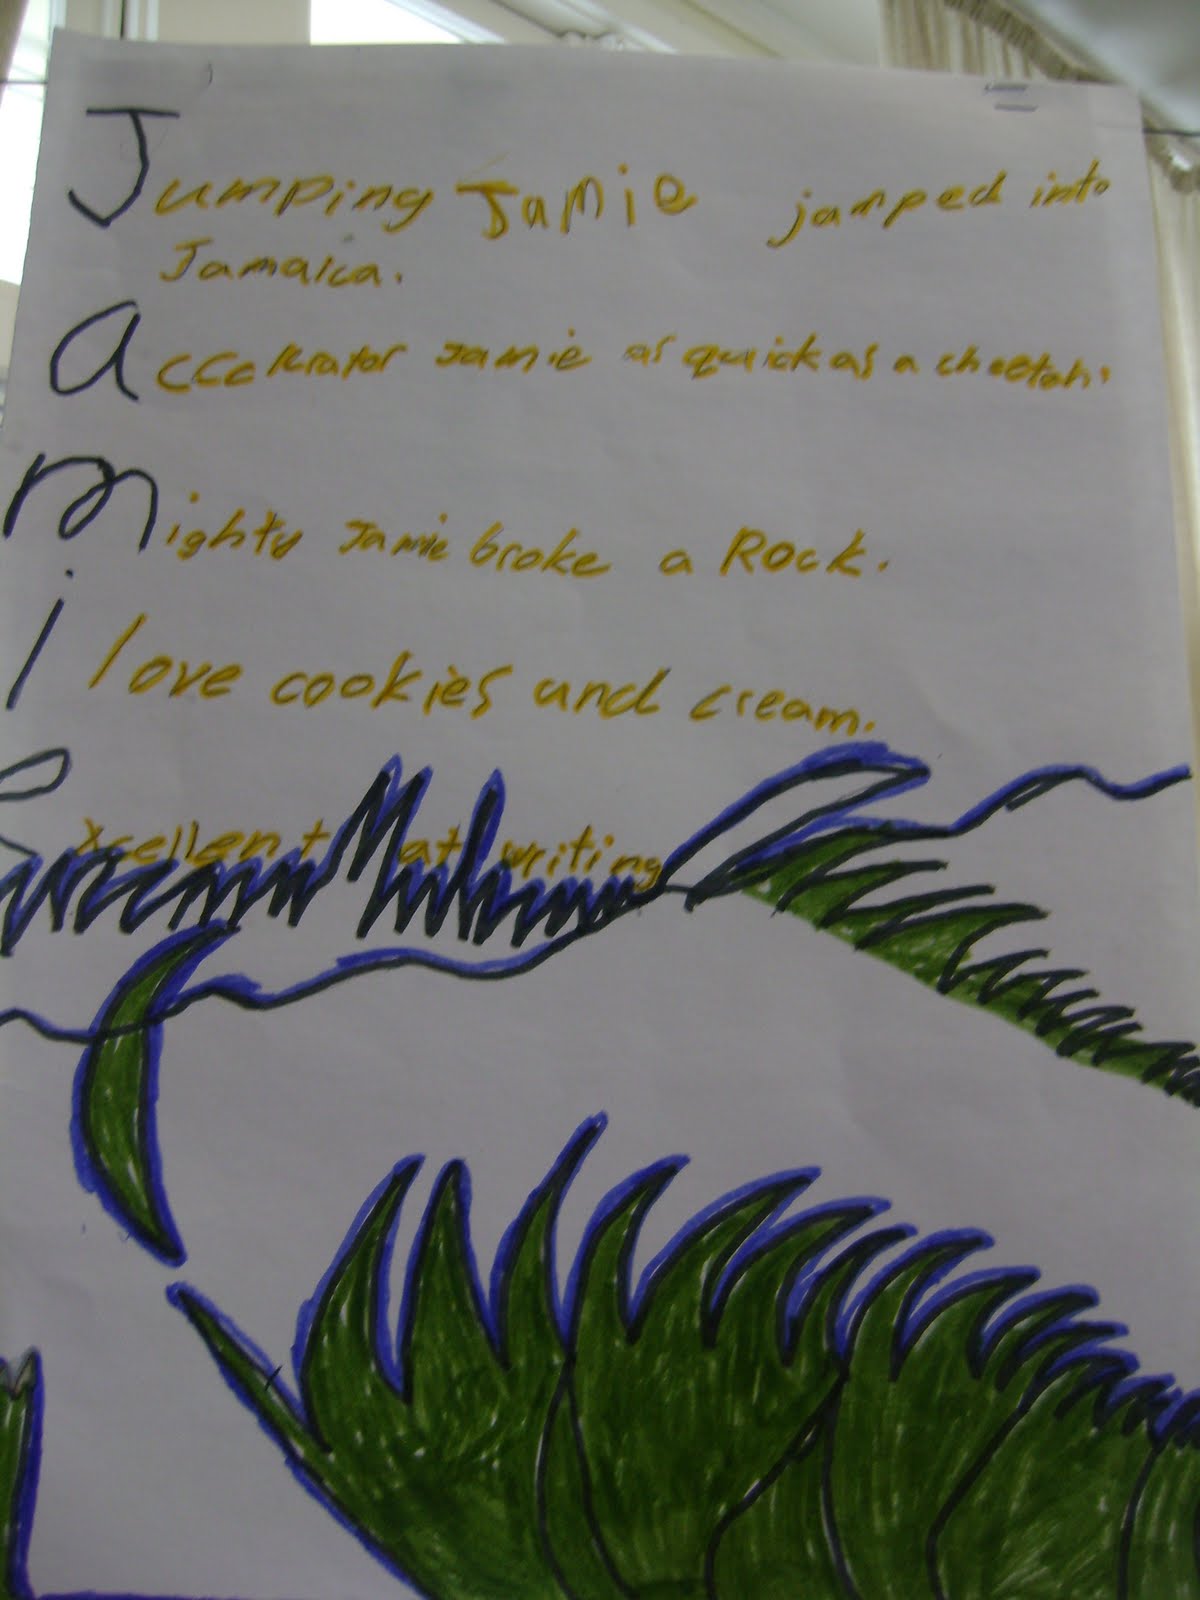 Jumping Jamie jamped into
Jamaica.
accelerator Jamie as quick as a cheetah.
mighty Jamie broke a Rock.
i love cookies and cream.
excellent at writing